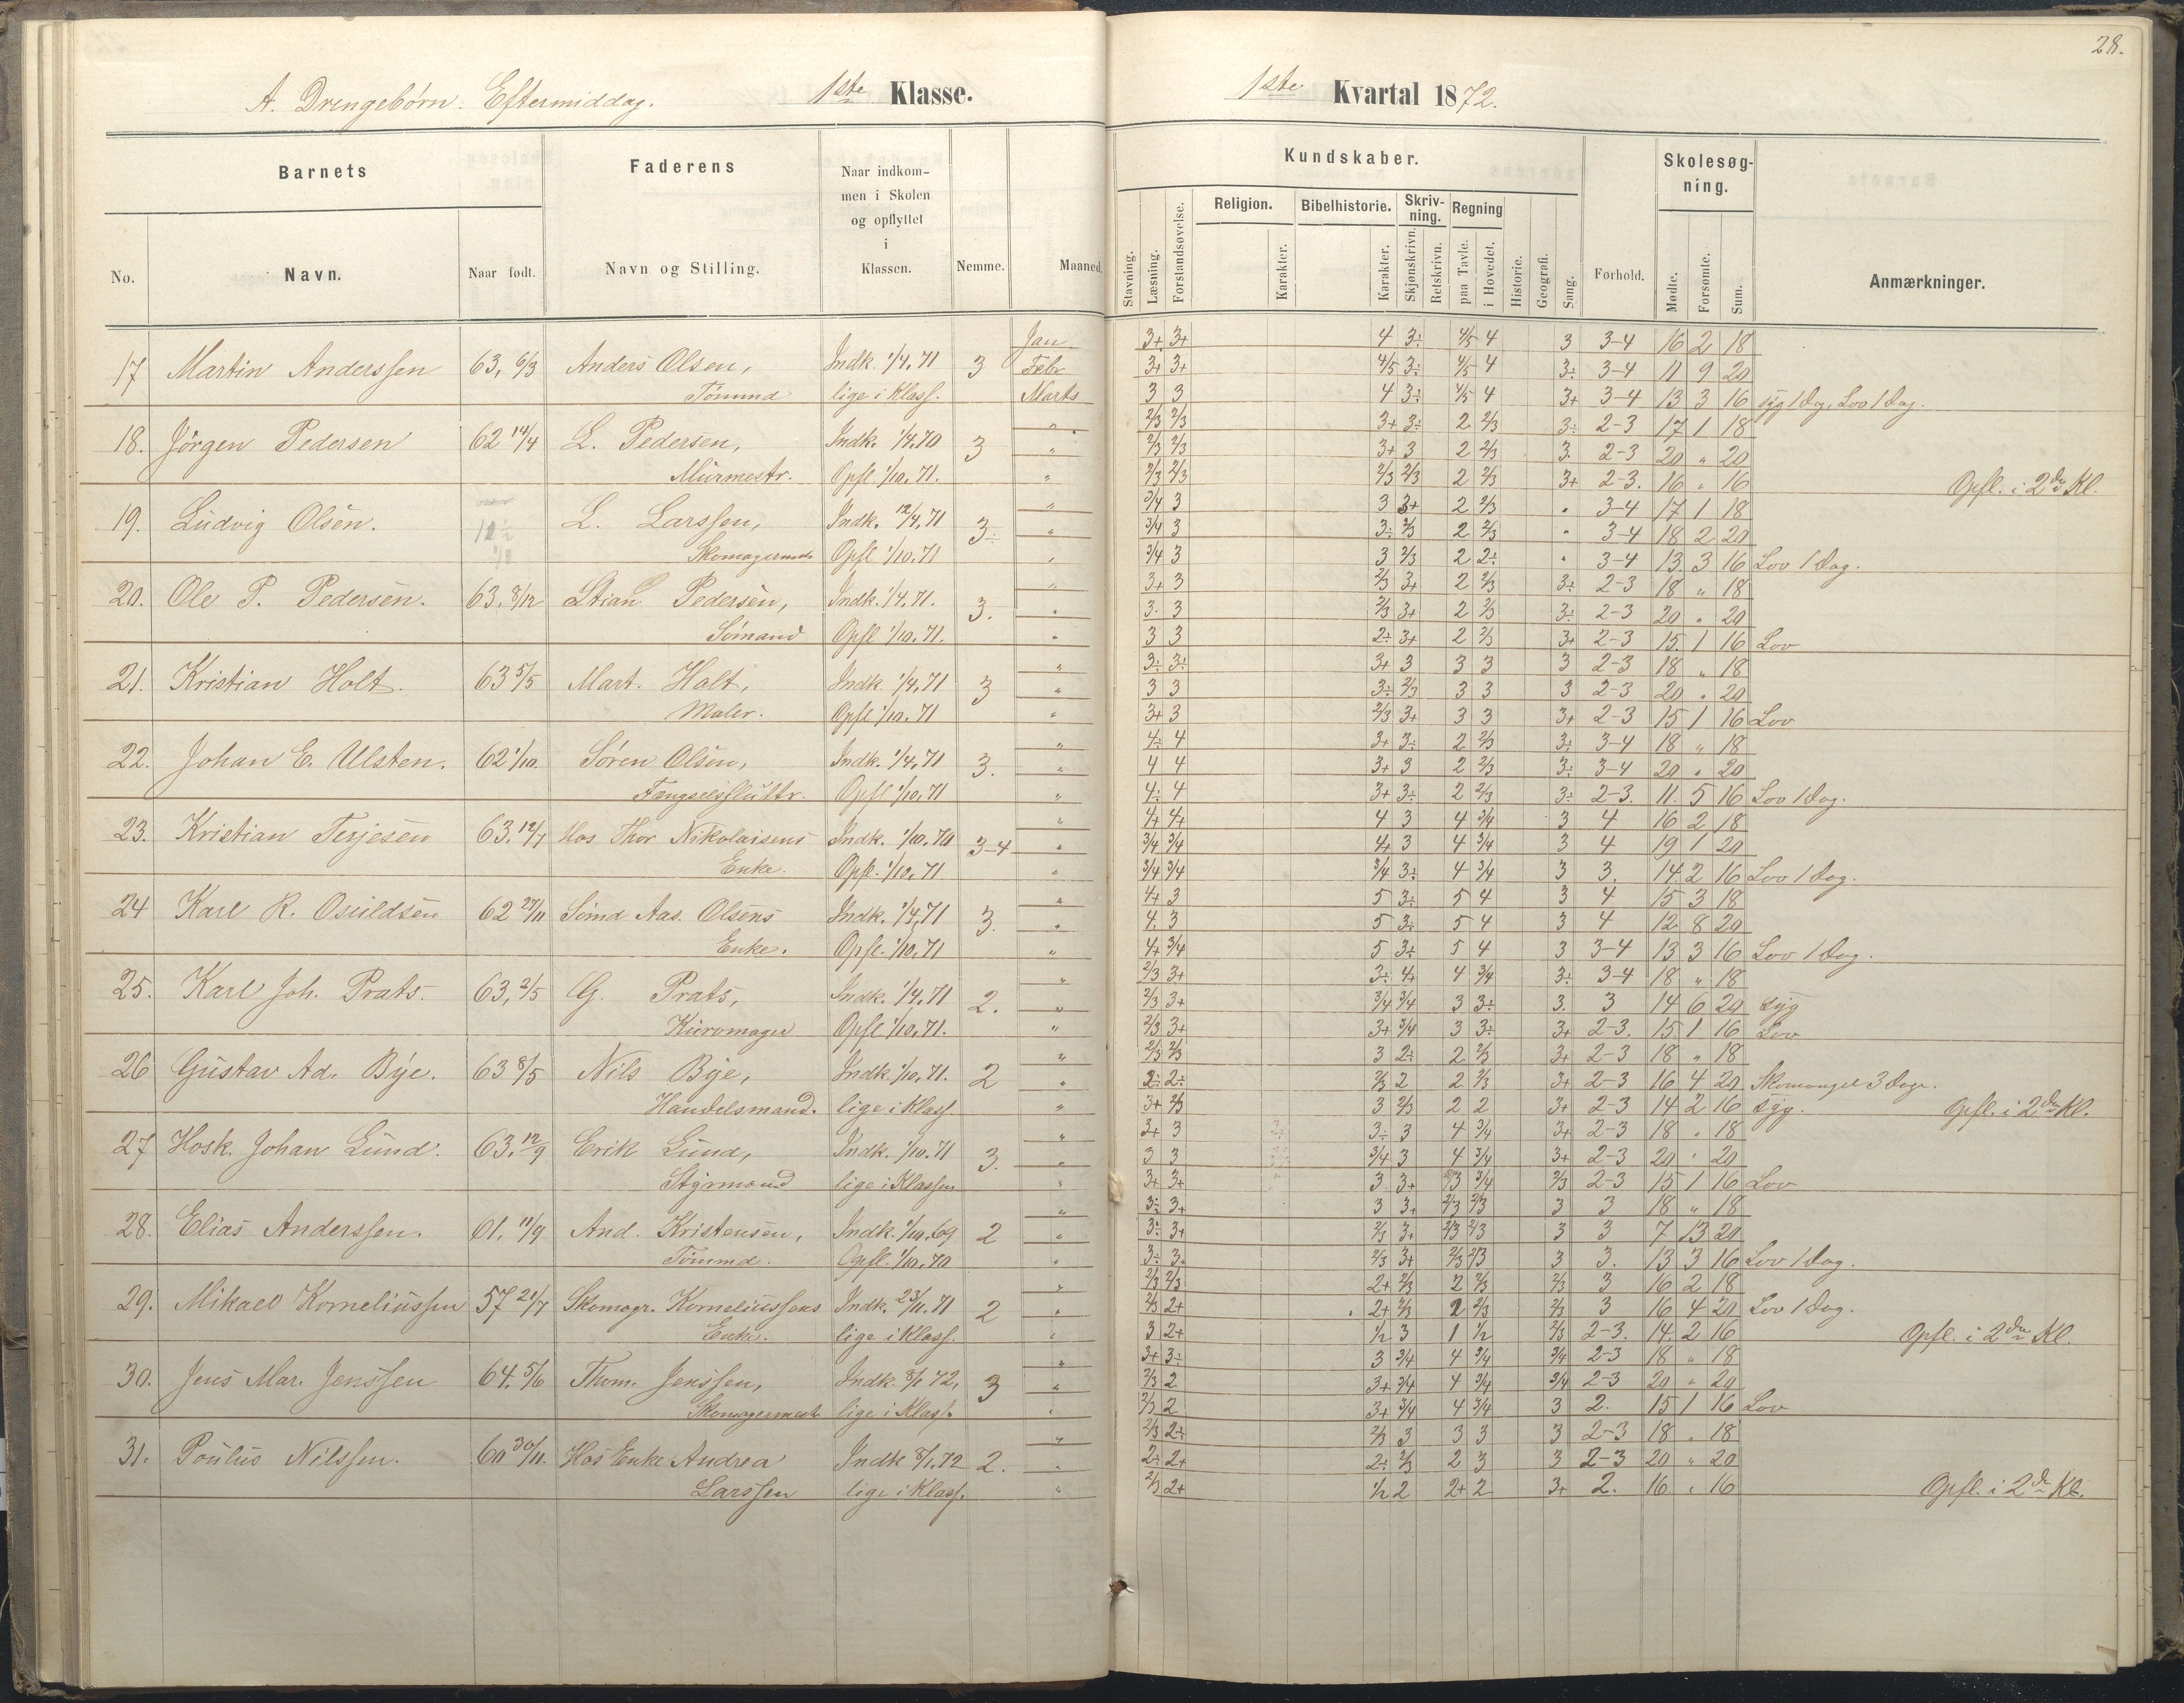 28.
A. Drengebørn. Eftermiddag. 1ste Klasse. 1ste Kvartal 1872.
Barnets Faderens Naar indkommen i Skolen og opflyttet i Klassen. Nemme. Maaned. Kundskaber. Forhold. Skolesøgning. Anmærkninger.
No. Navn. Naar født. Navn og Stilling.
Stavning. Læsning. Forstandsøvelse. Religion. Karakter. Bibelhistorie. Karakter. Skrivning. Skjønskrivn. Retskrivn. Regning paa Tavle. i Hovedet. Historie. Geografi. Sang. Mødte. Forsømte. Sum.
Jan 3+ 3+ 4 3÷ 4/5 4 3 3-4 16 2 18
17 Martin Anderssen 63, 6/3 Anders Olsen, Indk. 1/4, 71 3 Febr 3+ 3+ 4/5 3÷ 4/5 4 3÷ 3-4 11 9 20
Tømmd lige i Klass. Marts 3 3 4 3÷ 4/5 4 3+ 3-4 13 3 16 syg 1 Dag, Lov 1 Dag.
" 2/3 2/3 3+ 3÷ 2 2/3 3÷ 2-3 17 1 18
18. Jørgen Pedersen 62 14/4 L. Pedersen, Indk. 1/4, 70 3 " 2/3 2/3 3+ 3 2 2/3 3. 2-3 20 " 20
Murmestr. Opfl 1/10. 71. " 2/3 2/3 2/3 2/3 2 2/3 3+ 2-3. 16 " 16 Opfl. i 2den Kl.
" 3/4 3 3 3+ 2 2/3 " 3-4 17 1 18
19. Ludvig Olsen. L. Larssen, Indk. 12/4, 71 3÷ " 3/4 3 3÷ 2/3 2 2/3 " 3-4 18 2 20
Skomagermd Opfl 1/10. 71 " 3/4 3 3 2/3 2 2÷ " 3-4 13. 3 16 Lov 1 Dag.
" 3+ 3 2/3 3+ 2 2/3 3÷ 2-3 18 " 18
20. Ole P. Pedersen. 63, 8/12 Stian Pedersen, Indk. 1/4, 71. 3. " 3. 3 2/3 3+ 2 2/3 3÷ 2-3 20 " 20
Sømand Opfl 1/10, 71. " 3 3 2÷ 3+ 2 2/3 3+ 2-3 15. 1 16 Lov
" 3÷ 3÷ 3+ 3 3 3 3 2-3 18 " 18
21. Kristian Holt. 63 5/5 Mart. Holt, Indk. 1/4, 71 3 " 3 3 3÷ 2/3 3 3 3 2-3 20 " 20
Maler. Opfl 1/10. 71 " 3+ 3 2/3 3+ 3 3 3+ 2-3 15 1 16 Lov
" 4÷ 4 3+ 3÷ 2 2/3 3÷ 3-4 18 " 18
22. Johan E. Ulsten. 62 1/10. Søren Olsen, Indk. 1/4, 71 3. " 4 4 3+ 3 2 2/3 3÷ 3-4 20 " 20
Fængselsslutter. Opfl 1/10, 71 " 4÷ 4 3+ 3÷ 2 2/3 3÷ 2-3. 11. 5 16 Lov 1 Dag.
" 4+ 4+ 4 3 4 3/4 3 4 16 2 18
23. Kristian Terjesen 63, 12/7 Hos Thor Nikolaisens Indk. 1/10, 70 3-4 " 3/4 3/4 4+ 3 4 3/4 3 4 19 1 20
Enke. Opfl. 1/10, 71 " 3/4 3/4 3/4 3÷ 4 3/4 3 3. 14. 2 16 Lov 1 Dag.
" 4+ 3 5 3÷ 5 4 3 4 15 3 18
24 Karl R. Osuldsen 62 27/11 Sømd Aas. Olsens Indk. 1/4, 71 3. " 4. 3 5 3÷ 5 4 3 4 12 8 20
Enke. Opfl. 1/10, 71 " 4+ 3/4 5 3÷ 5 4 3 3-4 13 3 16 Lov 1 Dag.
" 2/3 3+ 3÷ 4+ 4 3/4 3÷ 3-4 18 " 18
25. Karl Joh. Prats. 63, 2/5 G. Prats, Indk. 1/4, 71 2. " 2/3 3+ 3/4 3/4 3 3÷ 3. 3 14 6 20 syg
Kurvmager Opfl 1/10, 71. " 2/3 3+ 3+ 3/4 3 3÷ 3+ 2-3. 15 1 16 Lov
" 2/3 2/3 3 2÷ 2 2/3 3+ 2-3 18 " 18
26 Gustav Ad. Bye. 63 8/5 Nils Bye, Indk. 1/10, 71. 2 " 2÷ 2÷ 2/3 2 2 2/3 3+ 2-3 16 4 20 Skomangel 3 Dage.
Handelsmand. lige i Klass. " 3+ 2/3 3 2/3 2 2 3+ 2-3 14 2 16 syg. Opfl. i 2den Kl.
" 3+ 3 3÷ 3 4 3/4 3+ 2-3 18 " 18
27 Hosk. Johan Lund. 63, 12/9 Erik Lund, Indk. 1/10. 71 3. " 3 3 3/4 3 4 3/4 3+ 2-3 20 " 20
Styrmand lige i Klassen " 3+ 3+ 3 3+ 2/3 3/4 2/3 2-3 15 1 16 Lov
" 3÷ 3+ 3 3+ 2/3 2/3 3 3 18 " 18
28. Elias Anderssen. 61, 11/9 And. Kristensen, Indk. 1/10, 69 2 " 3÷ 3+ 2/3 3+ 2/3 2/3 3 3 7 13 20
Tømmd. Opfl. 1/10, 70 " 3÷ 3. 2/3 3+ 2/3 2/3 3 3. 13 3 16 Lov 1 Dag.
" 2/3 2/3 2+ 2/3 2 2/3 2/3 3 16 2 18
29. Mikael Korneliussen 57 21/7 Skomagr. Korneliussens Indk. 23/11. 71 2 " 2/3 2+ 2+ 2/3 2 2/3 2/3 3 16 4 20 Lov 1 Dag.
Enke. lige i Klass. " 3 2+ 1/2 3 1 1/2 2/3 2-3. 14. 2 16 Opfl. i 2den Kl.
" 3+ 3÷ 3 3/4 4 3/4 3/4 2-3 18 " 18
30. Jens Mar. Jenssen 64. 5/6 Thom. Jenssen, Indk. 8/1 72, 3 " 2/3 2 3+ 3/4 4 3/4 3/4 2-3 20 " 20
Skomagermest lige i Klass. " 2/3 2 3+ 3/4 4 3/4 3 2. 15 1 16 Lov
" 2/3 2÷ 2/3 3 3 3 3 2-3 18 " 18
31. Poulus Nilssen. 60 30/11. Hos Enke Andrea Indk 8/1, 72 2. " 2÷ 2+ 2÷ 2/3 2 3 3 2-3 20 " 20
Larssen lige i Klass. " 2/3 2+ 1/2 2 2+ 2 3+ 2. 16 " 16 Opfl. i 2den Kl.